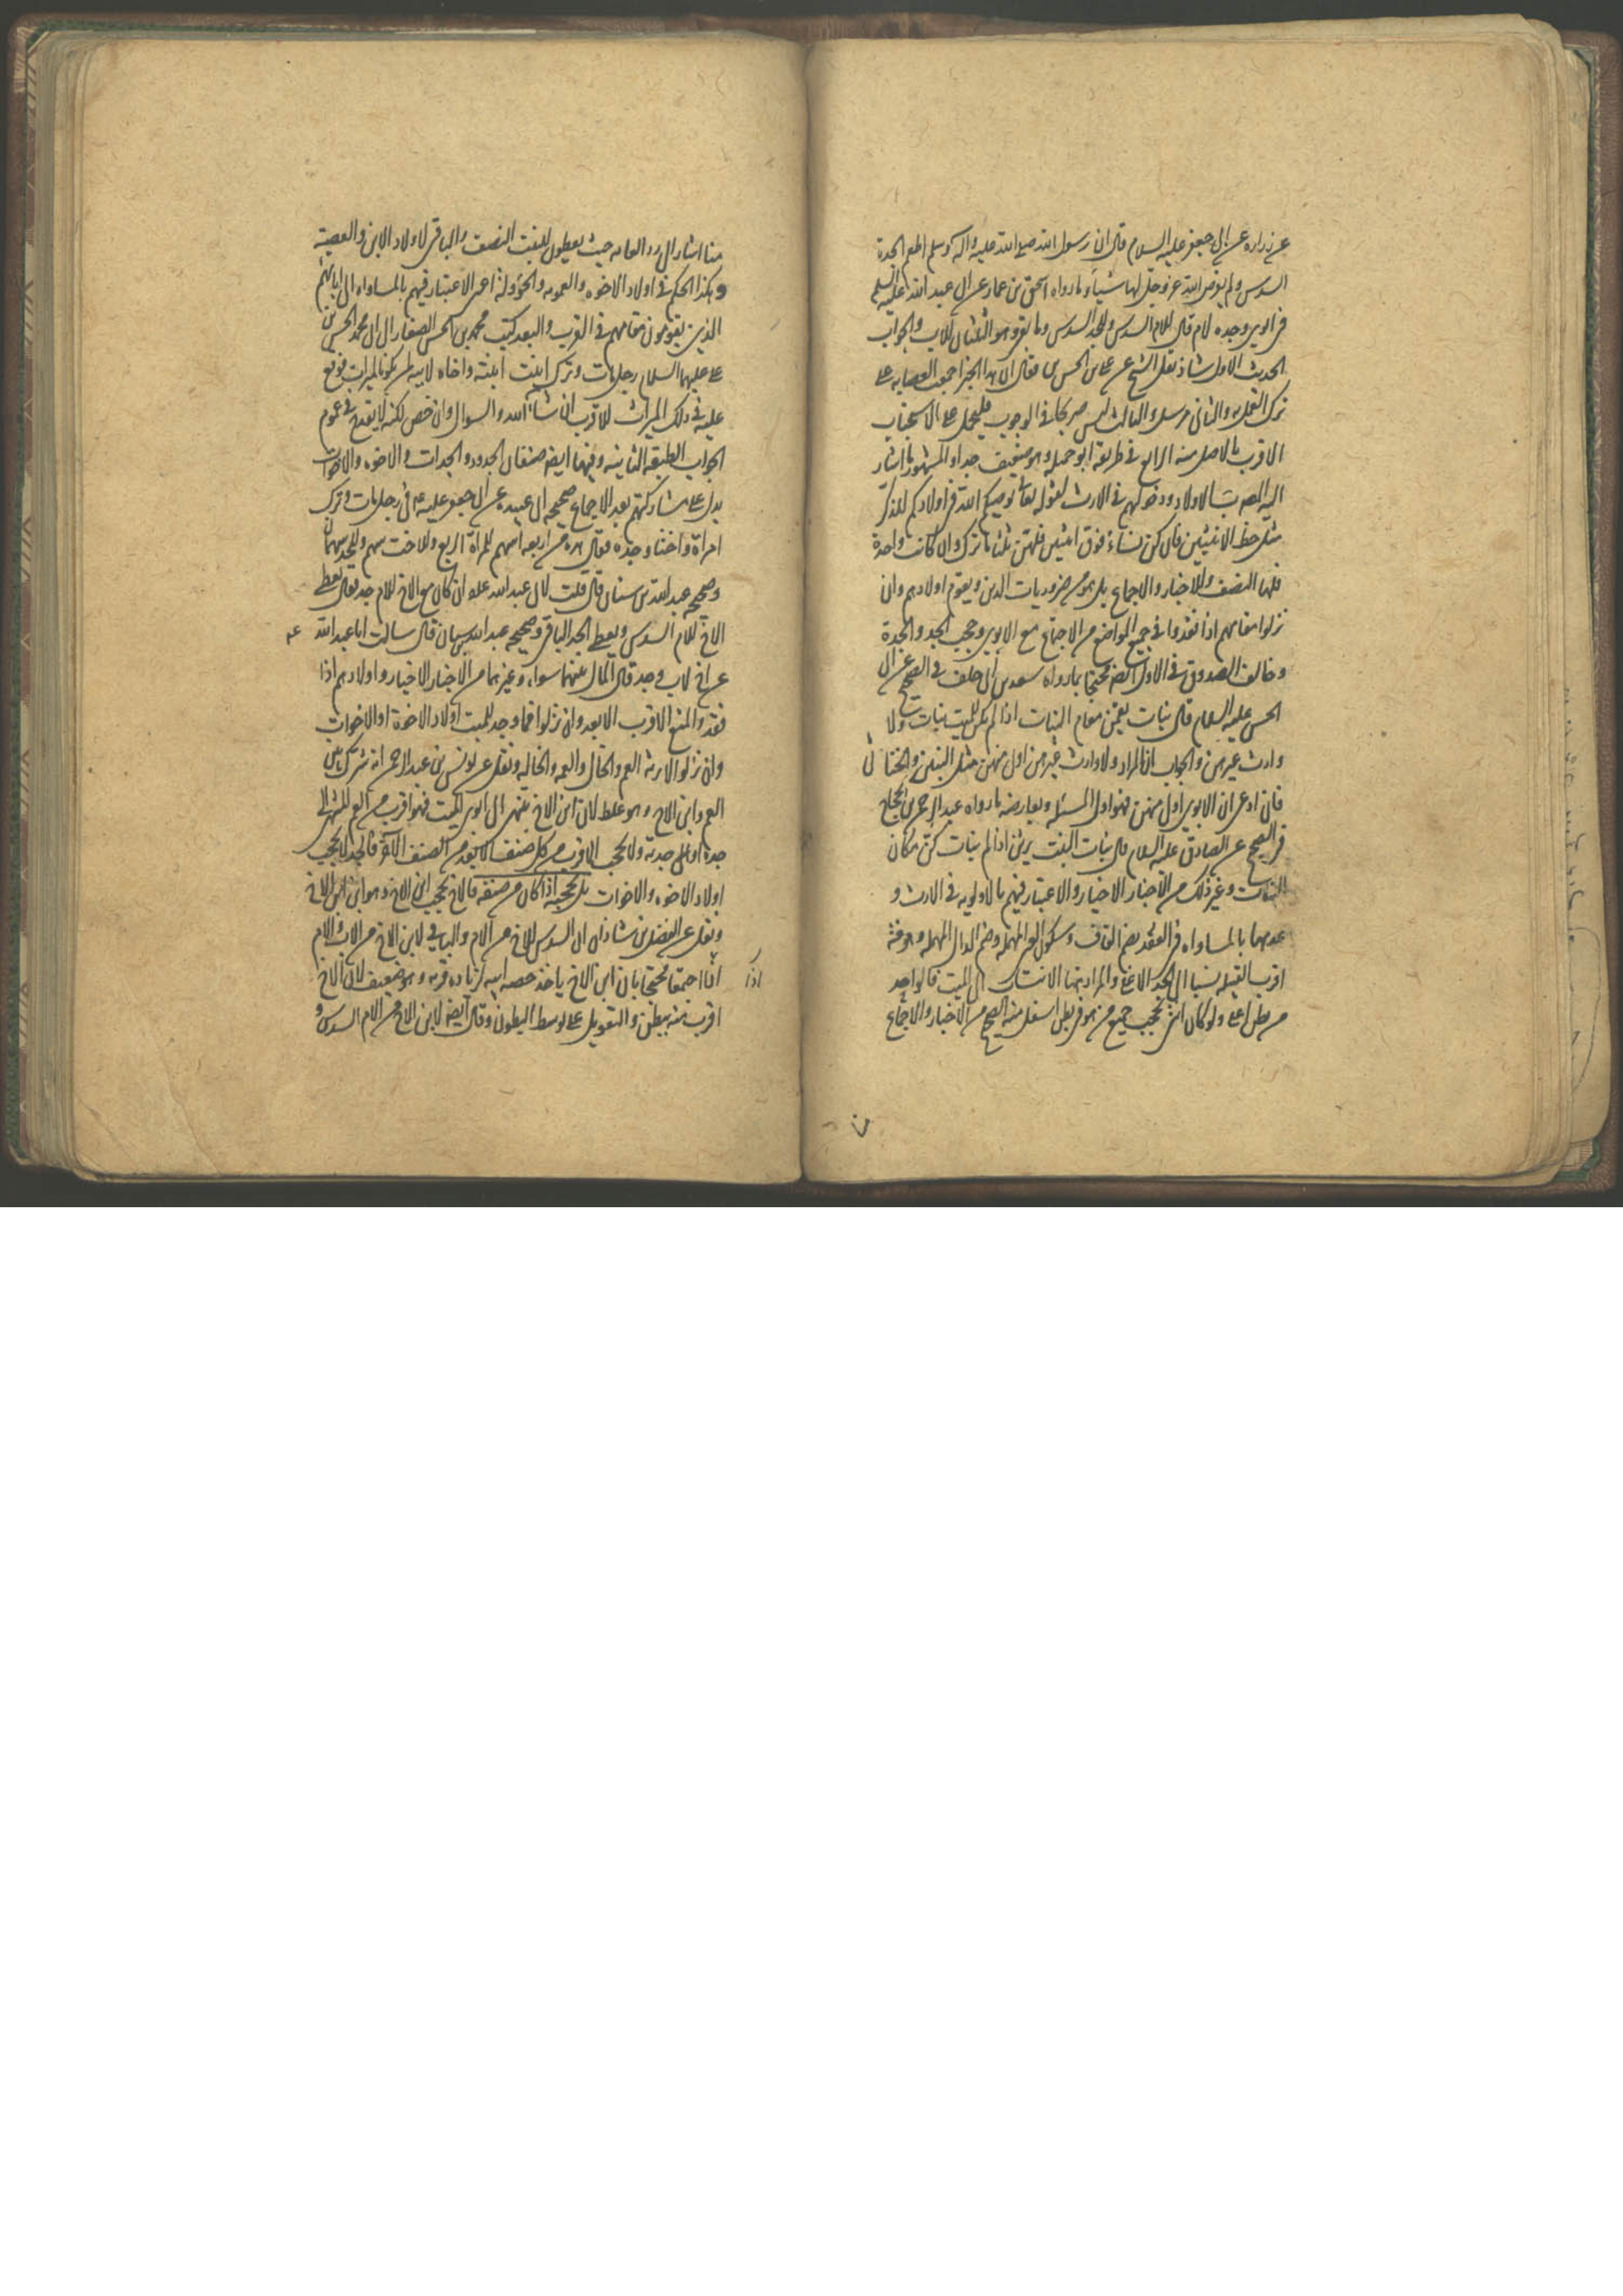 عن زراره عن ابى جعفر عليه السلام قال ان رسول الله صلى الله عليه واله وسلم اطعم الجدة
السدس ولم يفرض الله عز وجل لها شيئا وما رواه اسحق بن عمار عن ابى عبد الله عليه السلم
فى ابوين وجده لام قال للام السدس وللجد السدس وما بقى وهو الثلثان للاب والجواب
الحديث الاول شاذ نقل الشيخ عن على بن الحسن بن فقال ان هذا الخبر اجمعت العصابه على
ترك العمل به والثانى مرسل والثالث ليس صريحا فى الوجوب فليحمل على الاستحباب
الاقرب بالاصل منه الرابع فى طريقه ابو جميله وهو ضعيف جدا والمشهور ما اشار
اليه المص ب الاولاد ودخولهم فى الارث لقوله تعالى يوصيكم الله فى اولادكم للذكر
مثل حظ الانثيين فان كن نساء فوق اثنتين فلهن ثلثا ما ترك وان كانت واحدة
فلها النصف وللاخبار والاجماع بل هو من ضروريات الدين ويقوم اولادهم وان
نزلوا مقامهم اذا فقدوا فى جميع المواضع من الاجتماع مع الابوين وحجب الجد والجدة
وخالف الصدوق فى الاول محتجا بما رواه سعد بن ابى خلف فى الصحيح عن ابى
الحسن عليه السلام قال بنات يقمن مقام البنات اذا لم يكن للميت بنات ولا
وارث غيرهن والجواب ان المراد ولا وارث غيرهن اولى منهن مثل البنين والخناثى
فان ادعى ان الابوين اولى منهن فهو اول المسئله ويعارضه ما رواه عبد الرحمن بن الحجاج
فى الصحيح عن الصادق عليه السلام قال بنات البنت يرثن اذا لم بنات كن مكان
البنات وغير ذلك من الاخبار الاخيار والاعتبار فيهم بالاولويه فى الارث و
عدمها بالمساواه فى القعدد بضم القاف وسكون العين المهمله وضم الدال المهمله وهو فى
اقرب القبيله نسبا الى الجد الاعلى والمراد بهما الانتساب الى الميت فالواحد
من بطن اعلى ولو كان انثى يحجب جميع من هو فى بطن اسفل منه الصحيح من الاخبار والاجماع
منا اشار الى رد العامه حيث يعطون للبنت النصف والباقى لاولاد الابن والعصبة
وهكذا الحكم فى اولاد الاخوه والعمومه والخؤولة اعنى الاعتبار فيهم بالمساواه الى ابائهم
الذين يقومون مقامهم فى القرب والبعد كتب محمد بن الحسن الصفار الى ابى محمد الحسن بن
على عليهما السلام رجل مات وترك ابنت ابنته واخاه لابيه لمن يكون الميراث فوقع
عليه فى ذلك الميراث للاقرب ان شاء الله والسوال وان خص لكنه لا يقدح فى عموم
الجواب الطبقه الثانيه وفيها ايضا صنفان الجدود والجدات والاخوه والاخوات
يدل على مشاركتهم بعد الاجماع صحيحه ابى عبيده عن ابى جعفر عليه فى رجل مات وترك
امراة واختا وجده فقال هذه من اربعه اسهم للمراة الربع وللاخت سهم وللجد سهمان
وصحيحه عبد الله بن سنان قال قلت لابى عبد الله ان كان مع الاخ للام جد فقال يعطى
الاخ للام السدس ويعطى الجد الباقى وصحيحه عبد الله بن سنان قال سالت ابا عبد الله
عن اخ لاب وجد قال المال بينهما سواء وغيرهما من الاخبار الاخيار واولادهم اذا
فقدوا لمنع الاقرب الابعد وان نزلوا فما وجد للميت اولاد الاخوة او الاخوات
وان نزلوا لا يرث العم والخال والعمه والخاله ونقل عن يونس بن عبد الرحمن انه شرك بين
العم وابن الاخ وهو غلط لان ابن الاخ ينتهى الى ابوى الميت فهو اقرب من العم المنتهى الى
جده او الى جدته ولا يحجب الاقرب من كل صنف الابعد من الصنف الاخر فالجد لا يحجب
اولاد الاخوه والاخوات بل يحجبه اذا كان من صنفه فالاخ يحجب ابن الاخ وهو ابن ابن الاخ
ونقل عن الفضل بن شاذان ان السدس للاخ من الام والباقى لابن الاخ من الاب والام
اذا اجتمعا محتجا بان ابن الاخ ياخذ حصه ابيه لزياده قربه وهو ضعيف لان الاخ
اقرب منه ببطن والتعويل على توسط البطون وقال ايضا لابن الاخ من الام السدس و
اذا